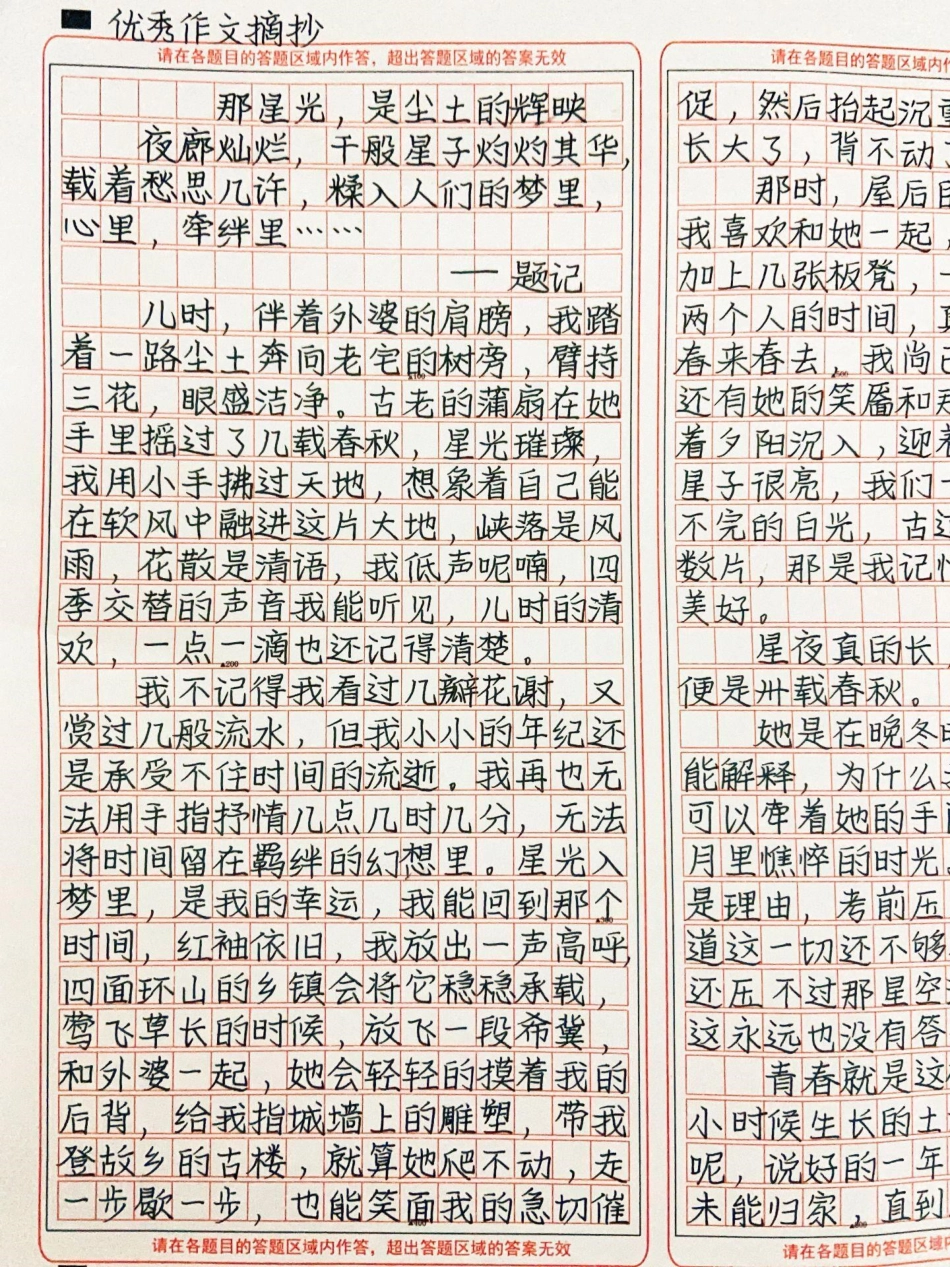 优秀作文摘抄
请在各题目的答题区域内作答，超出答题区域的答案无效
那星光，是尘土的辉映
夜廊灿烂，千般星子灼灼其华，
载着愁思几许，糅入人们的梦里，
心里，牵绊里……
——题记
儿时，伴着外婆的肩膀，我踏
着一路尘土奔向老宅的树旁，臂持
三花，眼盛洁净。古老的蒲扇在她
手里摇过了几载春秋，星光璀璨，
我用小手拂过天地，想象着自己能
在软风中融进这片大地，峡落是风
雨，花散是清语，我低声呢喃，四
季交替的声音我能听见，儿时的清
欢，一点一滴也还记得清楚。
我不记得我看过几瓣花谢，又
赏过几般流水，但我小小的年纪还
是承受不住时间的流逝。我再也无
法用手指抒情几点几时几分，无法
将时间留在羁绊的幻想里。星光入
梦里，是我的幸运，我能回到那个
时间，红袖依旧，我放出一声高呼，
四面环山的乡镇会将它稳稳承载，
莺飞草长的时候，放飞一段希冀，
和外婆一起，她会轻轻的摸着我的
后背，给我指城墙上的雕塑，带我
登故乡的古楼，就算她爬不动，走
一步歇一步，也能笑面我的急切催
请在各题目的答题区域内作答，超出答题区域的答案无效
请在各题目的答题区域内作
促，然后抬起沉重
长大了，背不动了
那时，屋后
我喜欢和她一起，
加上几张板凳，一
两个人的时间，
春来春去。我尚
还有她的笑靥和
着夕阳沉入，迎着
星子很亮，我们一
不完的白光，古
数片，那是我记忆
美好。
星夜真的长
便是卅载春秋。
她是在晚冬
能解释，为什么
可以牵着她的手
月里憔悴的时光
是理由，考前压
道这一切还不够
还压不过那星空
这永远也没有答
青春就是这
小时候生长的土
呢，说好的一年
未能归家，直到
请在各题目的答题区域内作